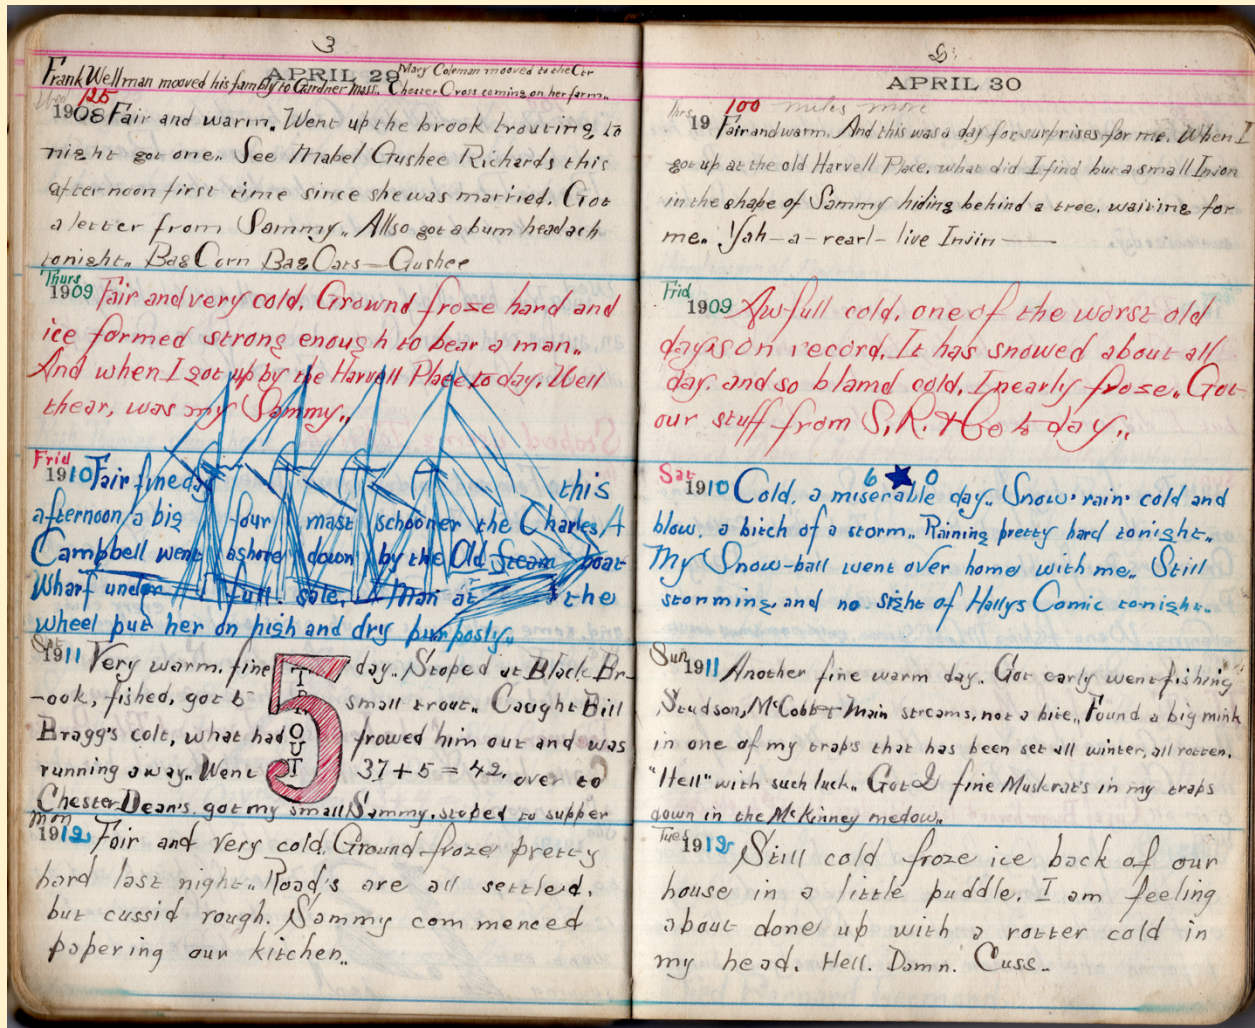 3
APRIL 29
Mary Coleman mooved to the Ctr
Frank Wellman mooved his fambly to Gardner Mass. Chester Cross coming on her farm..
Wed 125
1908 Fair and warm. Went up the brook trouting to
night got one.. See Mabel Gushee Richards this
afternoon first time since she was married. Got
a letter from Sammy.. Allso got a bum headach
tonight.. Bag Corn Bag Oats—Gushee
Thurs
1909 Fair and very cold. Grownd froze hard and
ice formed strong enough to bear a man..
And when I got up by the Harvell Place to day. Well
thear, was my Sammy..
Frid
1910 Fair fine day this
afternoon a big four mast schooner the Charles A
Campbell went ashore down by the Old Steam boat
Wharf under full sale. Man at the
wheel put her on high and dry purposly..
Sat
1911 Very warm. fine day.. Stoped at Black Br-
-ook, fished, got 5 small trout.. Caught Bill
Bragg's colt, what had frowed him out and was
running away.. Went 37+5=42. over to
Chester Dean's. got my small Sammy. stoped to supper
5
TROUT
Mon
1912 Fair and very cold. Ground froze pretty
hard last night.. Road's are all settled.
but cussid rough. Sammy commenced
papering our kitchen..
APRIL 30
100 miles more
19 Fair and warm. And this was a day for surprises for me. When I
got up at the old Harvell Place, what did I find but a small Inion
in the shape of Sammy hiding behind a tree. waiting for
me.. Yah—a—rearl—live Iniin——
Frid
1909 Awfull cold. one of the worst old
days on record. It has snowed about all
day. and so blamd cold. I nearly froze.. Got
our stuff from S. R. & Co to day..
Sat 6 ★ 0
1910 Cold, a miserable day.. Snow' rain' cold and
blow. a bitch of a storm.. Raining pretty hard tonight..
My Snow-ball went over home with me.. Still
storming and no sight of Hallys Comic tonight..
Sun
1911 Another fine warm day.. Got early went fishing
Studson, McCobb & Main streams, not a bite.. Found a big mink
in one of my traps that has been set all winter, all rotten.
"Hell" with such luck.. Got 2 fine Muskrats in my traps
down in the McKinney medow..
Tues
1912 Still cold froze ice back of our
house in a little puddle. I am feeling
about done up with a rotter cold in
my head. Hell. Damn. Cuss..